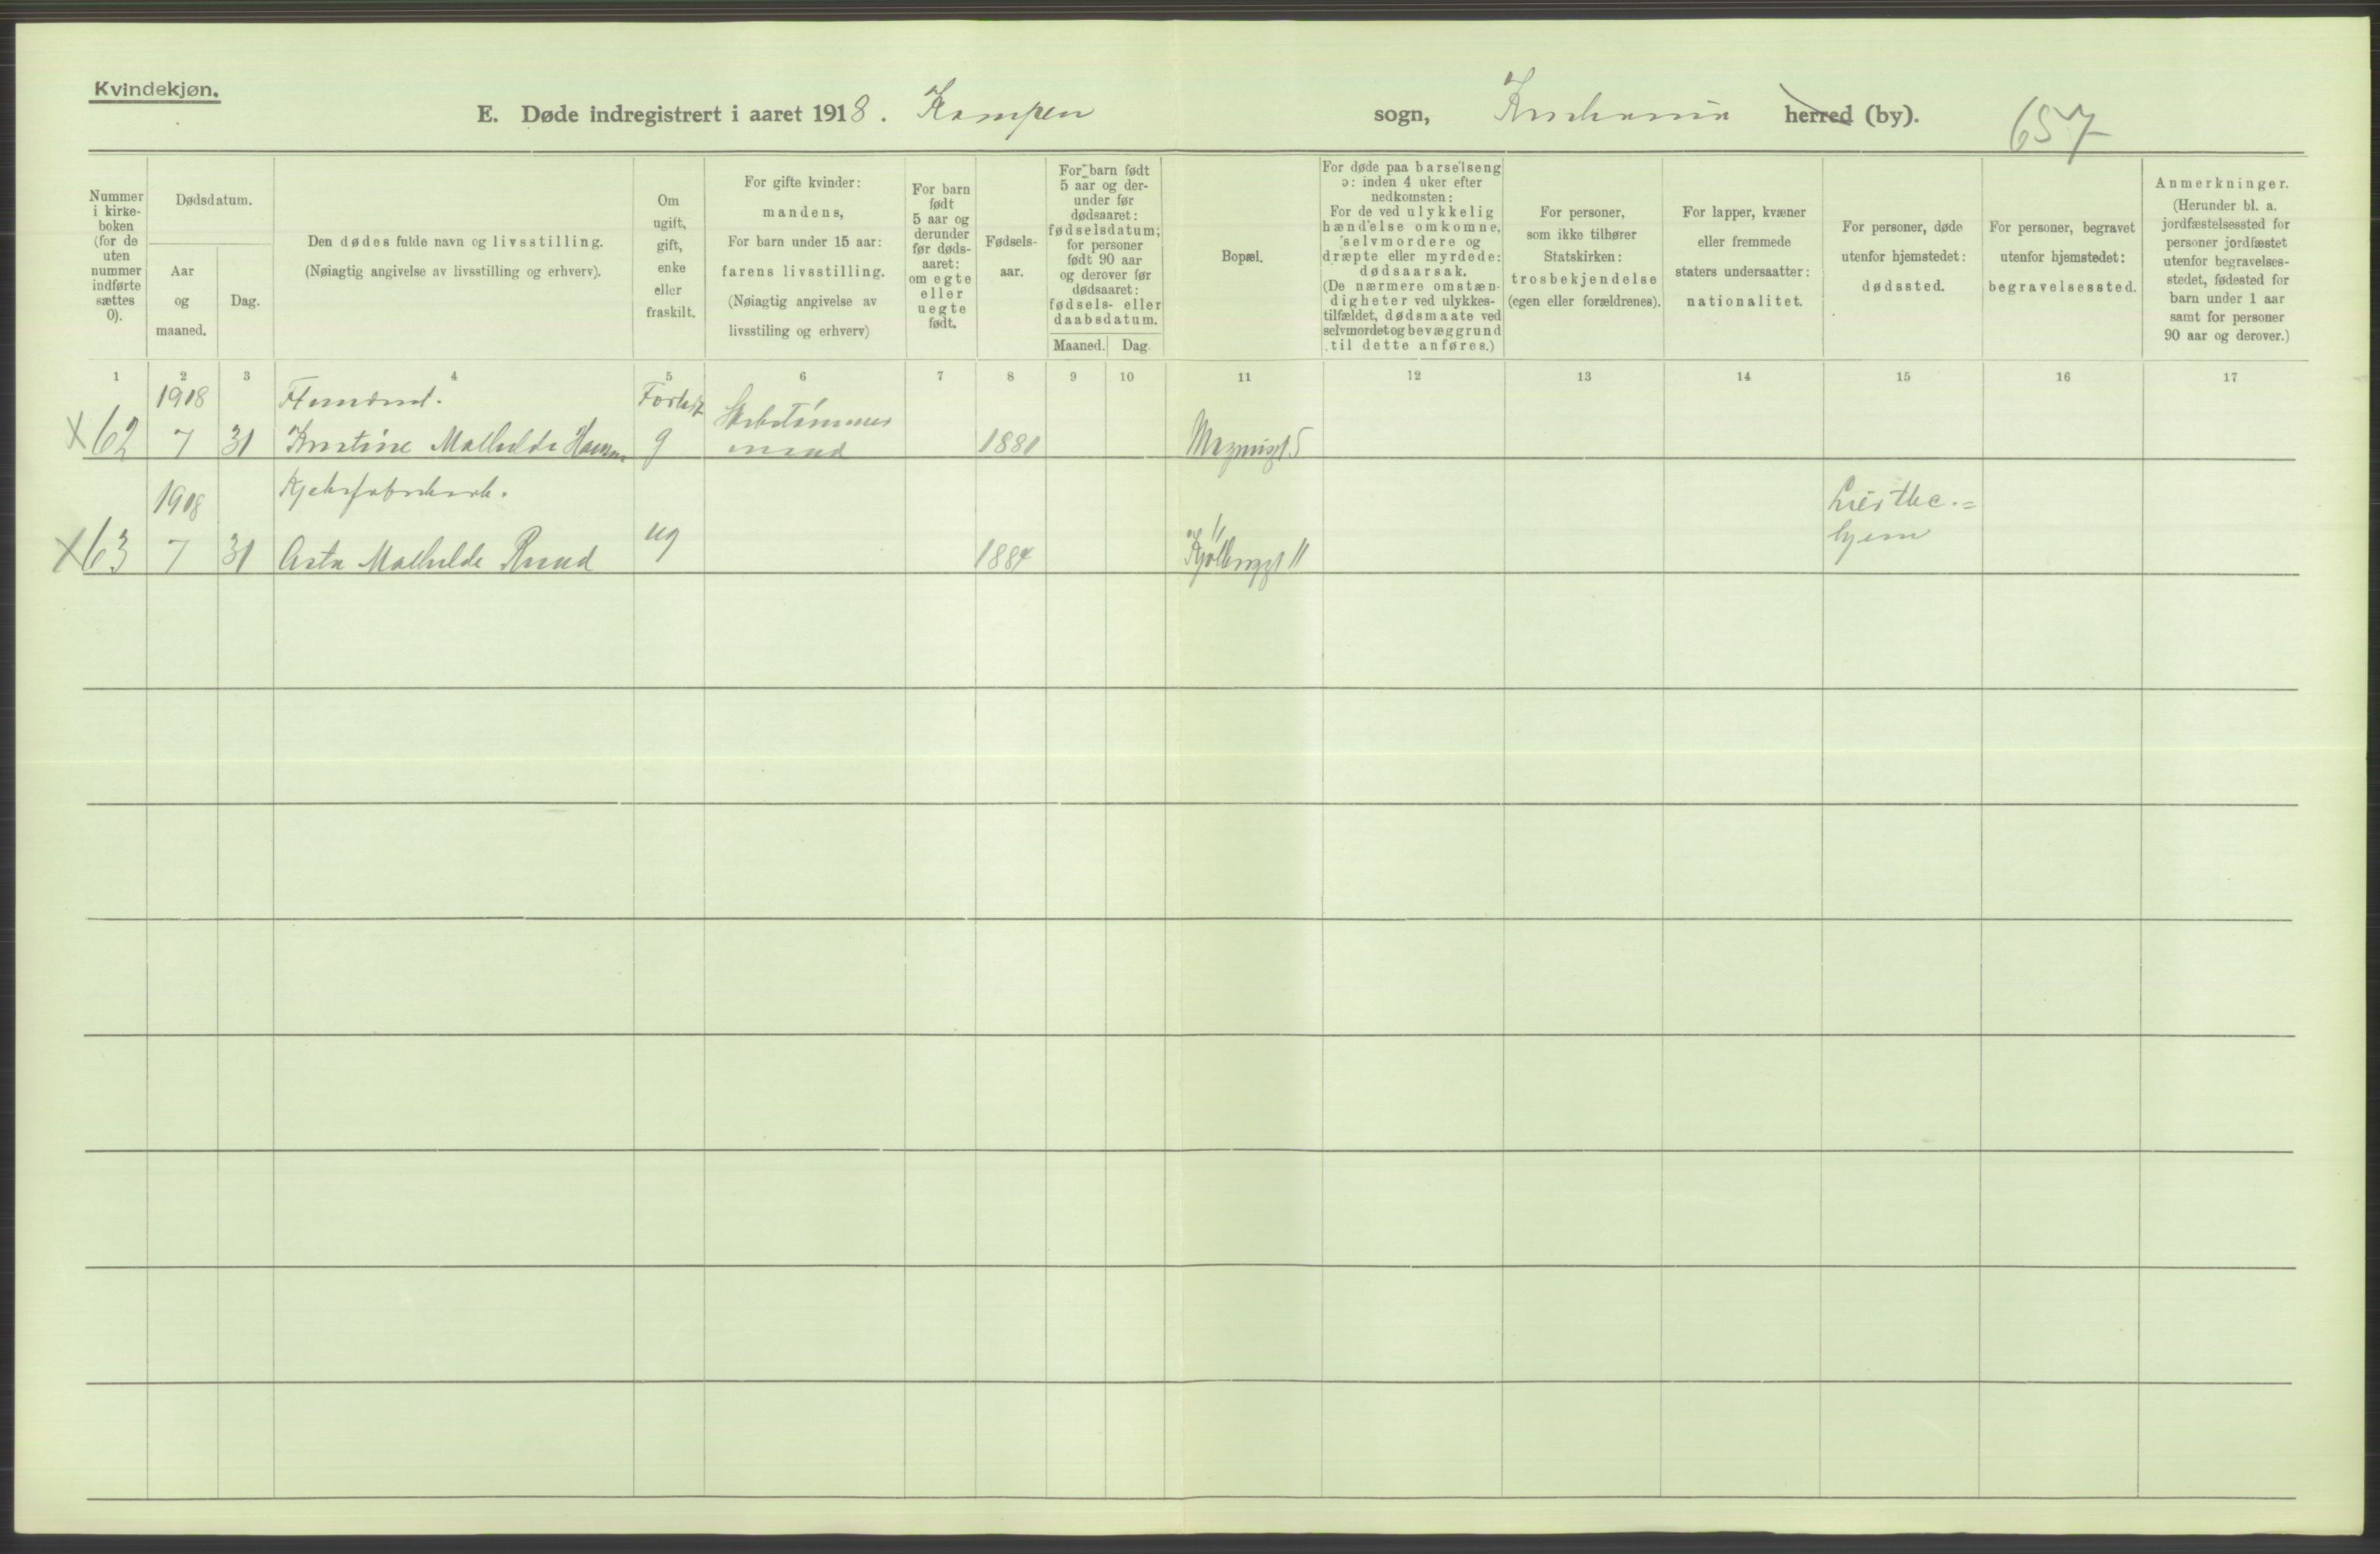 Kvindekjøn.
E. Døde indregistrert i aaret 1918. Kampen sogn, Kristiania herred (by). 657
Nummer i kirke- boken (for de uten nummer indførte sættes 0).
Dødsdatum.
Aar og maaned.
Dag.
Den dødes fulde navn og livsstilling.
(Nøiagtig angivelse av livsstilling og erhverv).
Om ugift, gift, enke eller fraskilt.
For gifte kvinder:
mandens,
For barn under 15 aar:
farens livsstilling.
(Nøiagtig angivelse av
livsstiling og erhverv)
For barn født 5 aar og derunder før døds- aaret: om egte eller uegte født.
Fødsels- aar.
For barn født 5 aar og der- under før dødsaaret: fødselsdatum; for personer født 90 aar og derover før dødsaaret: fødsels- eller daabsdatum.
Maaned. Dag.
Bopæl.
For døde paa barselseng ɔ: inden 4 uker efter nedkomsten: For de ved ulykkelig hændelse omkomne, selvmordere og dræpte eller myrdede: dødsaarsak. (De nærmere omstæn- digheter ved ulykkes- tilfældet, dødsmaate ved selvmordet og bevæggrund til dette anføres.)
For personer, som ikke tilhører Statskirken: trosbekjendelse (egen eller forældrenes).
For lapper, kvæner eller fremmede staters undersaatter: nationalitet.
For personer, døde utenfor hjemstedet: dødssted.
For personer, begravet utenfor hjemstedet: begravelsessted.
Anmerkninger. (Herunder bl. a. jordfæstelsessted for personer jordfæstet utenfor begravelses- stedet, fødested for barn under 1 aar samt for personer 90 aar og derover.)
1 2 3 4 5 6 7 8 9 10 11 12 13 14 15 16 17
1918
x 62 7 31 Kristine Mathilde g mand 1881
1918
x 63 7 31 Asta Mathilde Ruud ug 1884 11
hjem